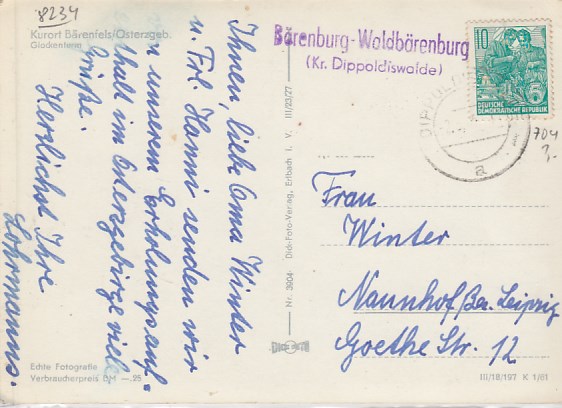 8234
Kurort Bärenfels/Osterzgeb.
Bärenburg-Waldbärenburg
(Kr. Dippoldiswalde)
10
DEUTSCHE
DEMOKRATISCHE REPUBLIK
5
DIPPOLD
a
704
3,-
Ihnen, liebe Oma Winter
u. Frl. Hanni senden wir
von unserem Erholungsauf=
enthalt im Osterzgebirge viele
Grüße.
Herzlichst Ihre
Lohrmanns.
Nr. 3904 Dick-Foto-Verlag, Erlbach i. V. III/23/27
DICK FOTO
Frau
Winter
Naunhof/bei Leipzig
Goethe Str. 12
Echte Fotografie
Verbraucherpreis DM —.25
III/18/197 K 1/61